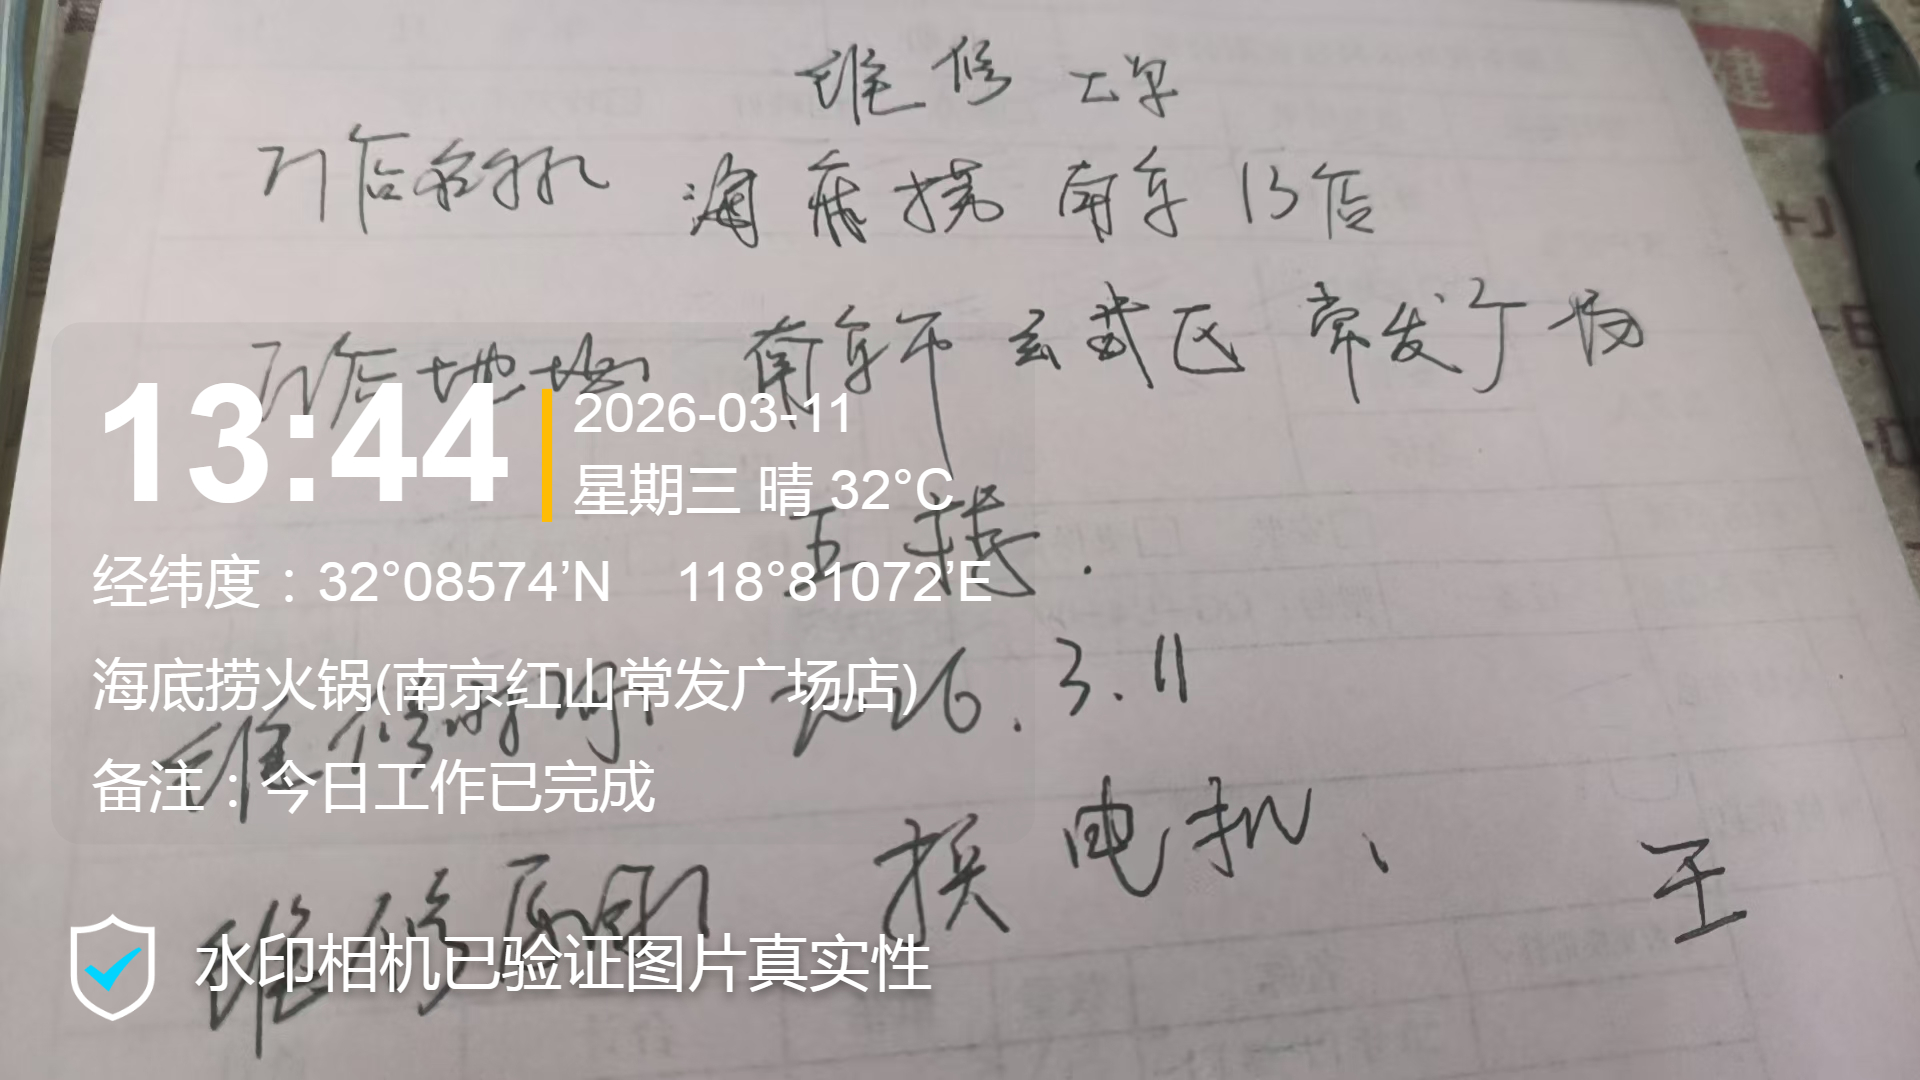 维修工单
门店名称 海底捞南京13店
门店地址 南京市玄武区常发广场
五楼.
维修时间 2026.3.11
维修原因 换电机、
王
13:44
2026-03-11
星期三 晴 32°C
经纬度：32°08574’N 118°81072’E
海底捞火锅(南京红山常发广场店)
备注：今日工作已完成
水印相机已验证图片真实性
建